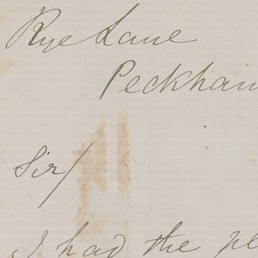 Rye Lane
Peckham
Sir/
I had the